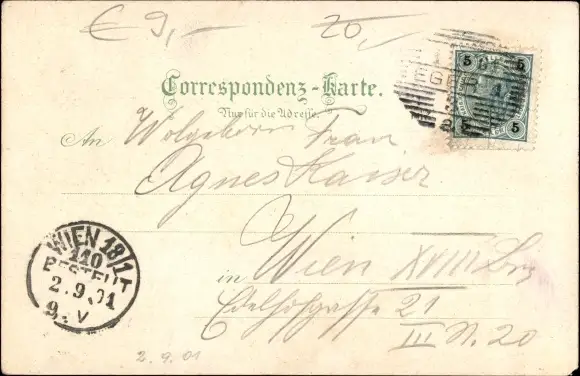 € 9,- 20,-
Correspondenz-Karte.
Nur für die Adresse.
5 5
EGER
5
An Wolgeborn Frau
Agnes Kaiser
in Wien XVIII Bez
Edelhofgasse 21
III N. 20
WIEN 18/1
110
BESTELLT
2.9.01
9.V
2.9.01